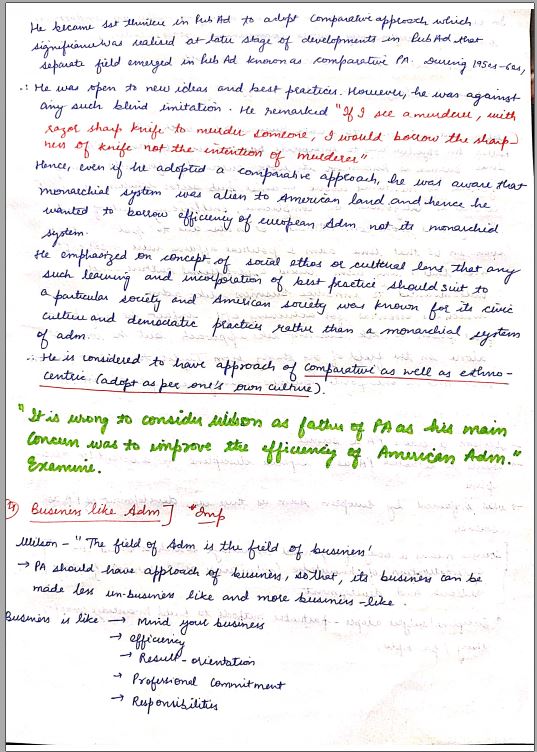 He became 1st thinker in Pub Ad to adopt comparative approach which
significance was realised at later stage of developments in Pub Ad that
separate field emerged in Pub Ad known as comparative PA. During 195es-60s,
∴ He was open to new ideas and best practices. However, he was against
any such blind imitation. He remarked "If I see a murderer, with
razor sharp knife to murder someone, I would borrow the sharp-
ness of knife not the intention of murderer"
Hence, even if he adopted a comparative approach, he was aware that
monarchial system was alien to American land and hence he
wanted to borrow efficiency of european Adm not its monarchial
system.
He emphasized on concept of social ethos or cultural lens that any
such learning and incorporation of best practice should suit to
a particular society and American society was known for its civic
culture and democratic practices rather than a monarchial system
of adm.
∴ He is considered to have approach of comparative as well as ethno-
centric (adopt as per one's own culture).
"It is wrong to consider Wilson as father of PA as his main
concern was to improve the efficiency of American Adm."
Examine.
Business like Adm] *Imp
Wilson - "The field of Adm is the field of business'
→ PA should have approach of business, so that, its business can be
made less un-business like and more business-like.
Business is like → Mind your business
→ efficiency
→ Result-orientation
→ Professional commitment
→ Responsibilities